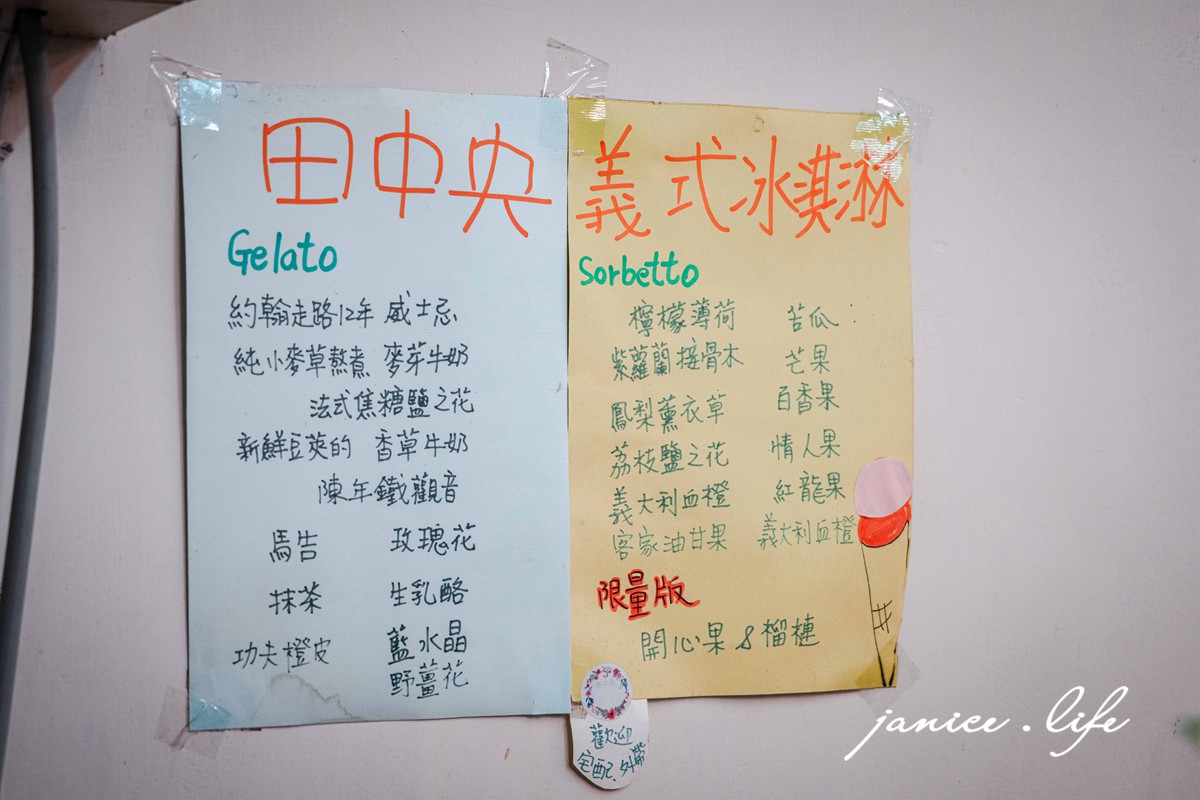 田中央 義式冰淇淋
Gelato
約翰走路12年 威士忌
純小麥草熬煮 麥芽牛奶
法式焦糖鹽之花
新鮮豆莢的 香草牛奶
陳年鐵觀音
馬告 玫瑰花
抹茶 生乳酪
功夫橙皮 藍水晶
野薑花
Sorbetto
檸檬薄荷 苦瓜
紫蘿蘭接骨木 芒果
鳳梨薰衣草 百香果
荔枝鹽之花 情人果
義大利血橙 紅龍果
客家油甘果 義大利血橙
限量版
開心果&榴槤
歡迎
宅配、外帶
janice.life